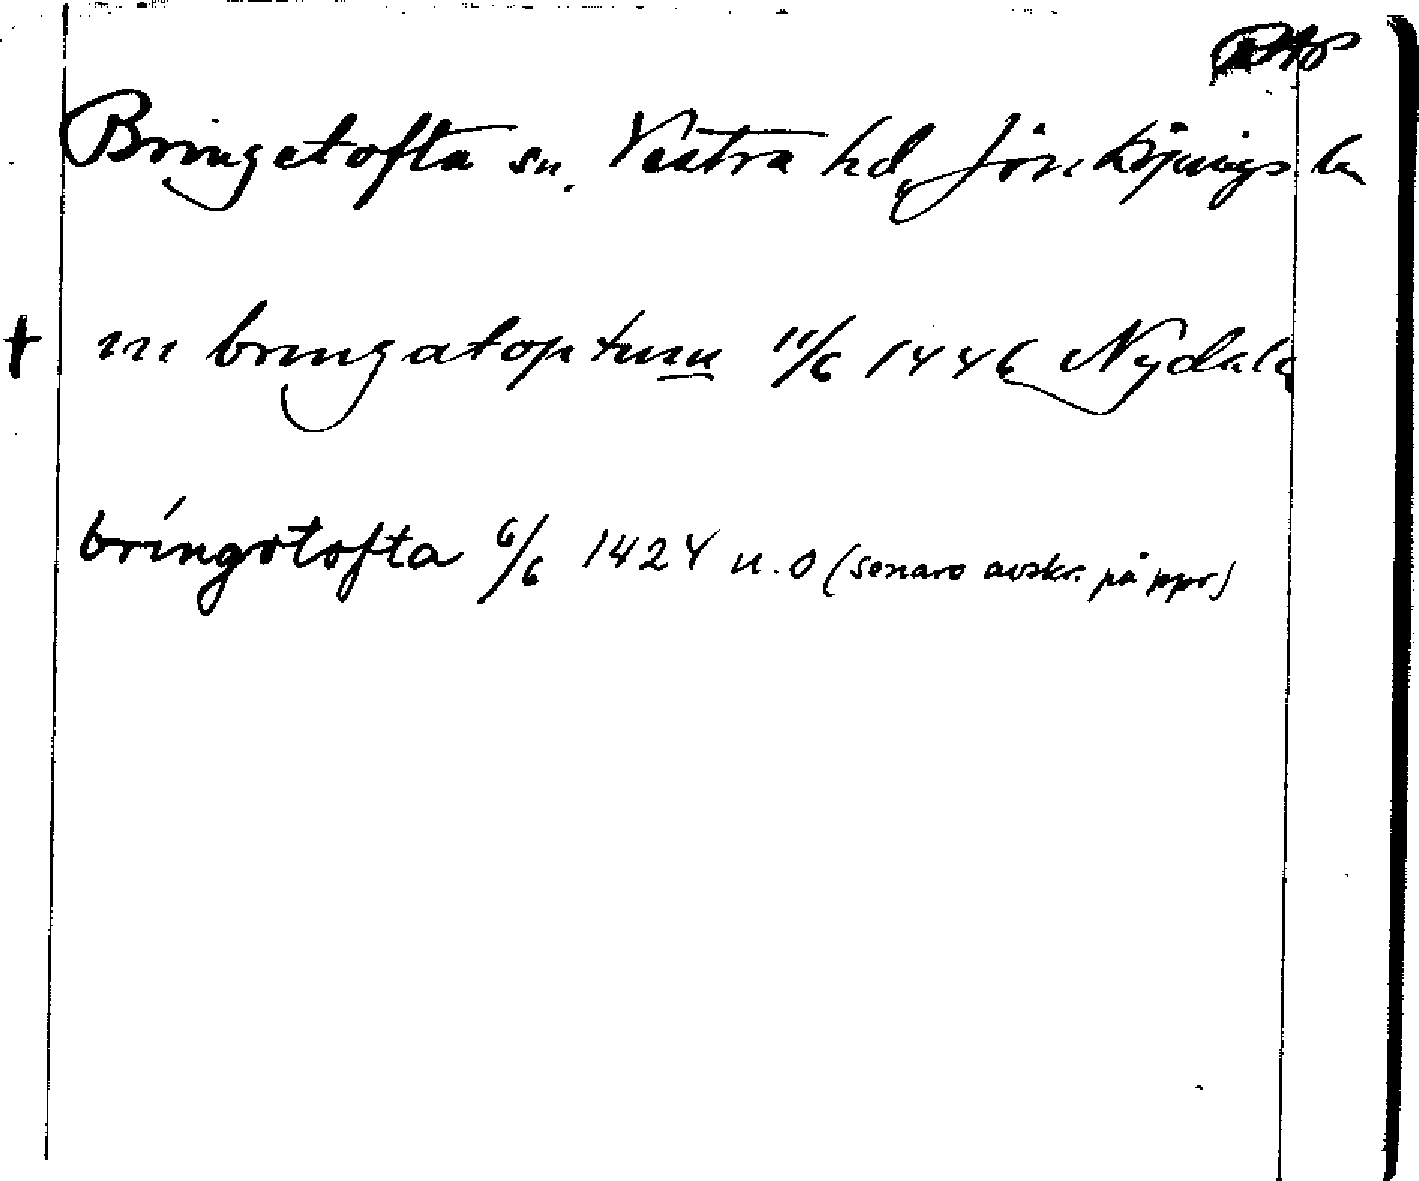 Bringetofta sn. Vestra hd, Jönköpings län
† in bringatoptum 11/6 1446 Nydala
bringotofta 6/6 1424 u.o (senare avskr. på ppr)